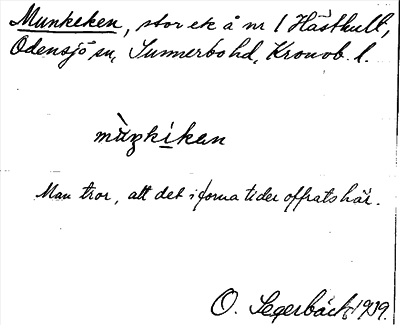 Munkeken, stor ek å nr 1 Hästhult,
Odensjö sn, Sunnerbo hd, Kronob. l.
mùŋkikan
Man tror, att det i forna tider offrats här.
O. Segerbäck 1939.